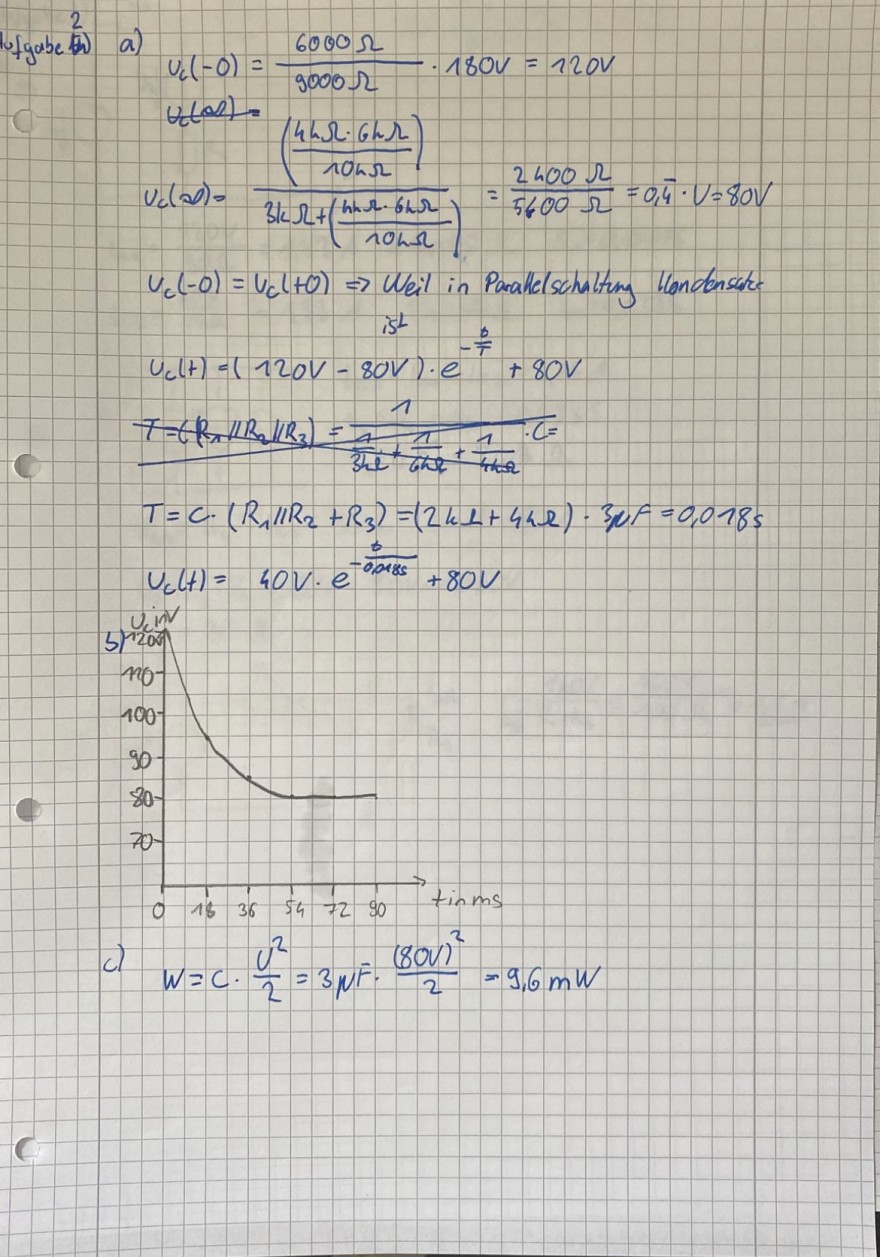 Aufgabe 2 a) U_c(-0) = 6000 Ω / 9000 Ω · 180V = 120V
U_c(∞) =
U_c(∞) = (4kΩ·6kΩ / 10kΩ) / (3kΩ + (4kΩ·6kΩ / 10kΩ)) = 2400 Ω / 5400 Ω = 0,4̄ · U = 80V
U_c(-0) = U_c(+0) => Weil in Parallelschaltung Kondensator
ist
U_c(t) = (120V - 80V) · e^(-t/T) + 80V
T = (R_1//R_2//R_3) = 1 / (1/3kΩ + 1/6kΩ + 1/4kΩ) · C =
T = C · (R_1//R_2 + R_3) = (2kΩ + 4kΩ) · 3μF = 0,018s
U_c(t) = 40V · e^(-t/0,018s) + 80V
U_c in V
b) 120
110
100
90
80
70
0 18 36 54 72 90 t in ms
c) W = C · U²/2 = 3μF · (80V)²/2 = 9,6 mW